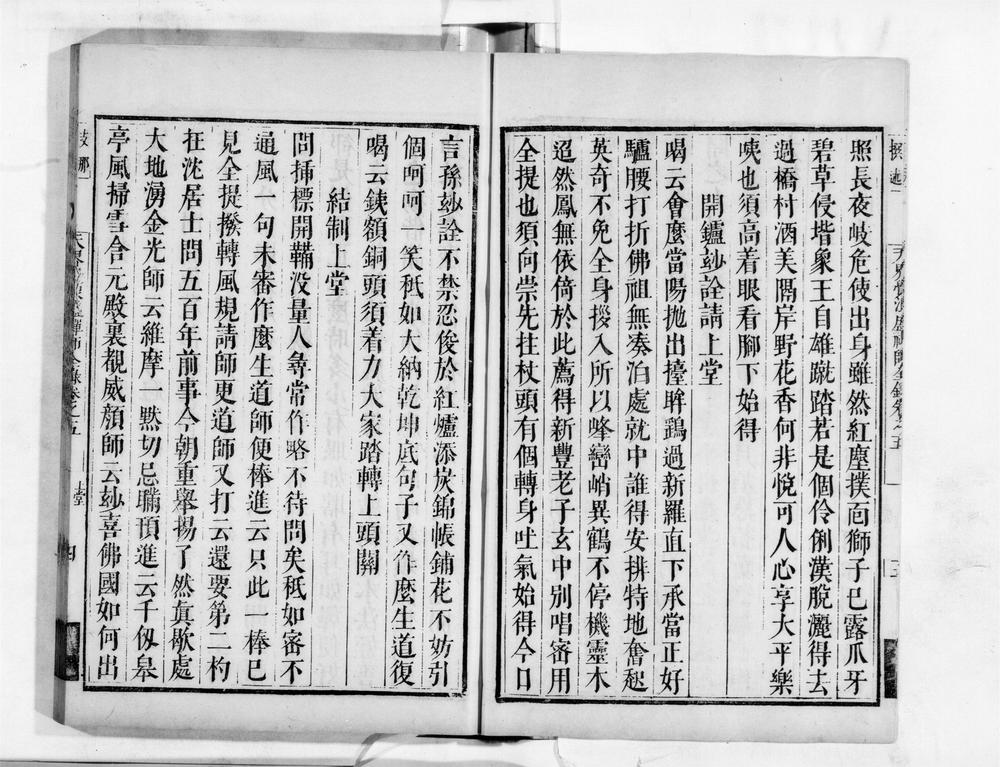 照長夜岐危使出身雖然紅塵撲面獅子已露爪牙
碧草侵堦象王自雄蹴踏若是個伶俐漢脫灑得去
過橋村酒美隔岸野花香何非悅可人心享大平樂
咦也須高着眼看腳下始得
開鑪玅詮請上堂
喝云會麼當陽拋出擡眸鷂過新羅直下承當正好
驢腰打折佛祖無湊泊處就中誰得安排特地奮起
英奇不免全身拶入所以峰巒峭異鶴不停機靈木
迢然鳳無依倚於此薦得新豐老子玄中別唱密用
全提也須向崇先拄杖頭有個轉身吐氣始得今日
言孫玅詮不禁忍俊於紅爐添炭錦帳鋪花不妨引
個呵呵一笑秪如大納乾坤底句子又作麼生道復
喝云鐵額銅頭須着力大家踏轉上頭關
結制上堂
問揷標開鞴没量人尋常作略不待問矣秪如密不
通風一句未審作麼生道師便棒進云只此一棒已
見全提撥轉風規請師更道師又打云還要第二杓
在沈居士問五百年前事今朝重舉揚了然眞歇處
大地湧金光師云維摩一默切忌瞞頇進云千仭皋
亭風掃雪含元殿裏覩威顏師云玅喜佛國如何出